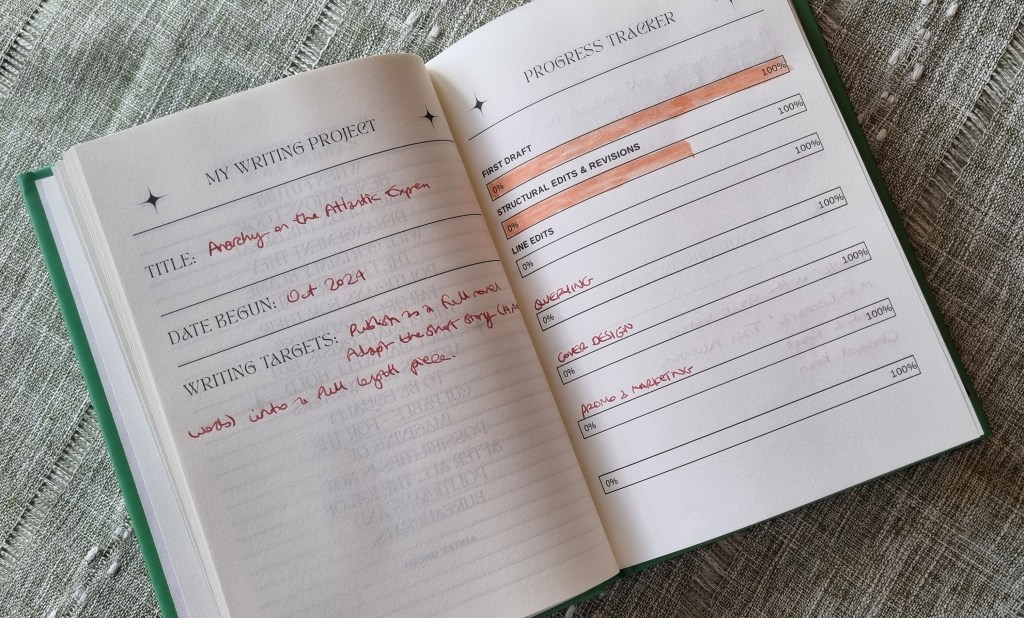 MY WRITING PROJECT
TITLE: Anarchy on the Atlantic Expren
DATE BEGUN: Oct 2024
WRITING TARGETS: Publish as a full novel
Adapt the short story
words) into a full length piece.
PROGRESS TRACKER
100%
FIRST DRAFT
0%
100%
STRUCTURAL EDITS & REVISIONS
0%
100%
LINE EDITS
0%
100%
QUERYING
0%
100%
COVER DESIGN
0%
100%
PROMO & MARKETING
0%
100%
0%